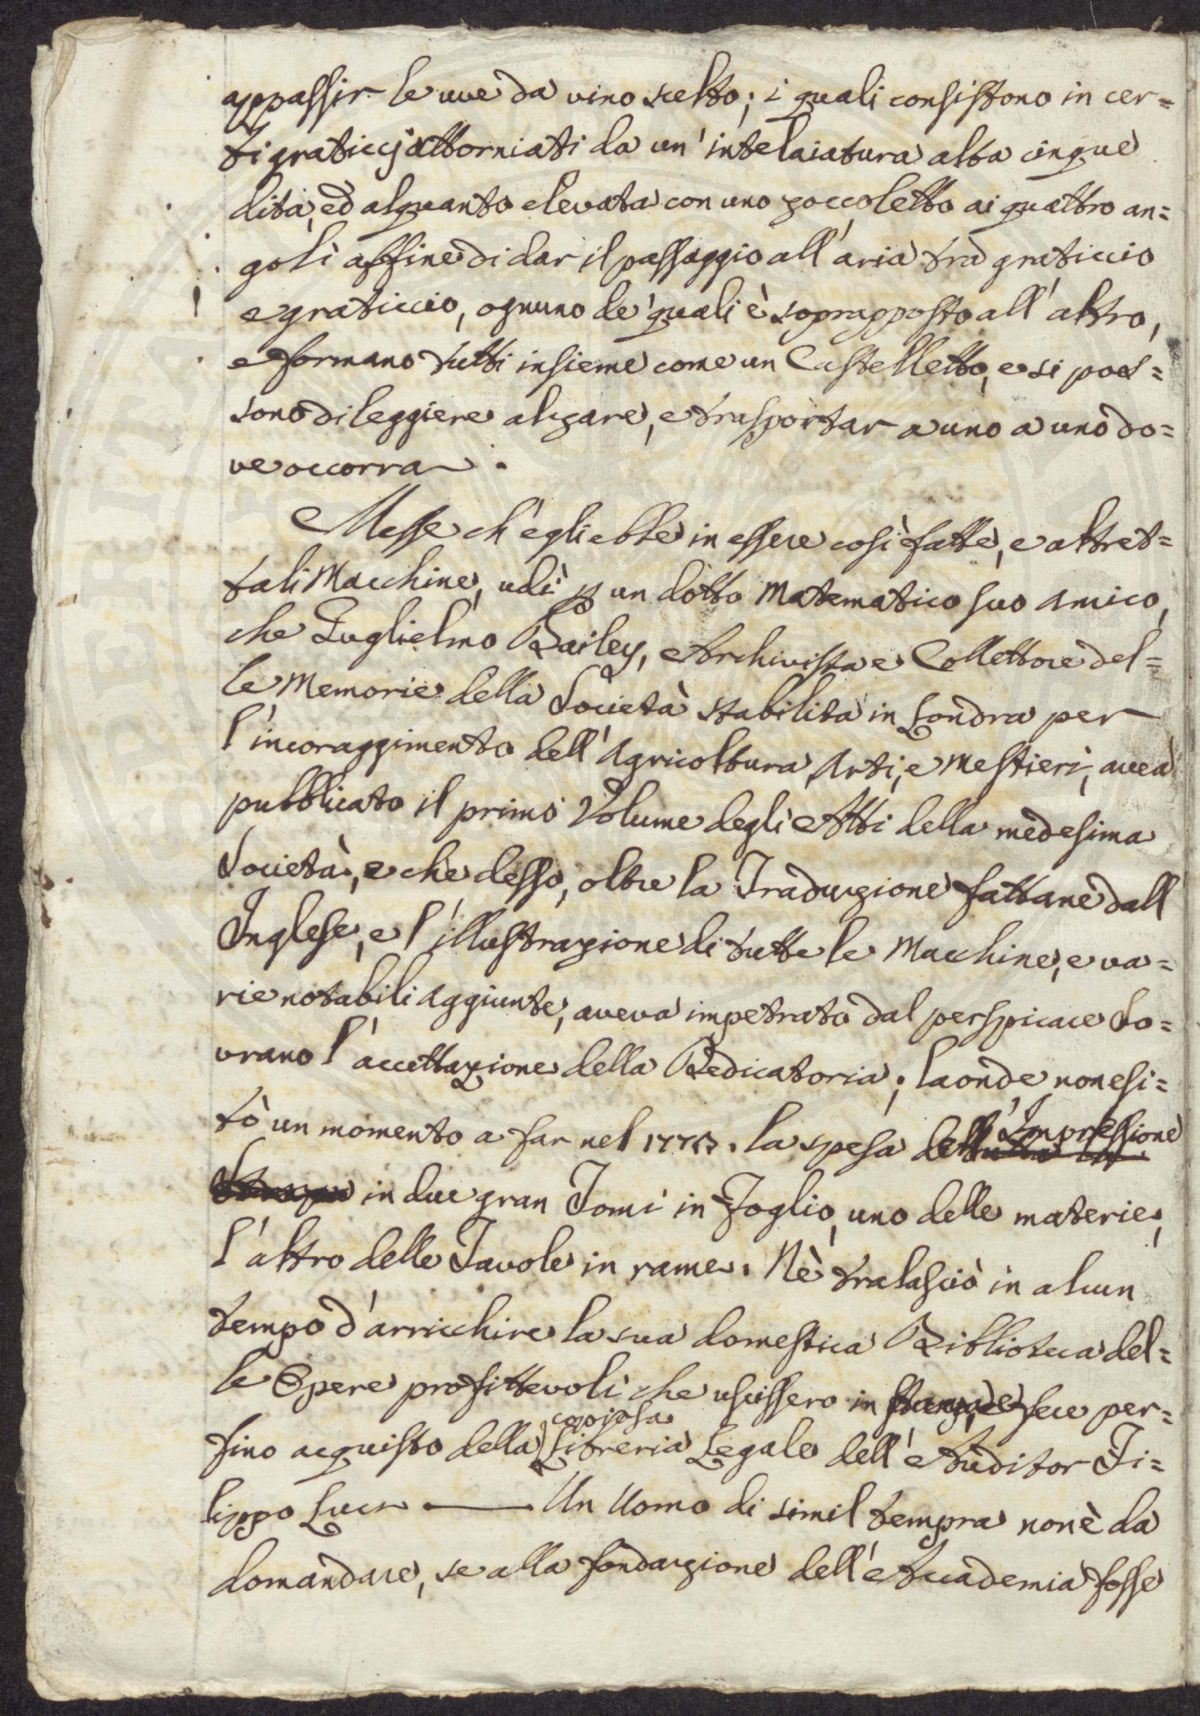 appassir le uve da vino scelto; i quali consistono in cer=
ti graticcj attorniati da un' intelaiatura alta cinque
dita, ed alquanto elevata con uno zoccoletto ai quattro an=
goli affine di dar il passaggio all' aria tra graticcio
e graticcio, ognuno de' quali è soprapposto all' altro,
e formano tutti insieme come un Castelletto, e si pos=
sono di leggiere alzare, e trasportar a uno a uno do=
ve occorra.
Messe ch' egli ebbe in essere così fatte, e altret=
tali Macchine, udì p un dotto Matematico suo Amico,
che Guglielmo Bailey, Archivista e Collettore del=
le Memorie della Società stabilita in Londra per
l' incoraggimento dell' Agricoltura, Arti, e Mestieri, avea
pubblicato il primo Volume degli Atti della medesima
Società, e che desso, oltre la Traduzione fattane dall
Inglese, e l' illustrazione di tutte le Macchine, e va=
rie notabili Aggiunte, aveva impetrato dal perspicace So=
vrano l' accettazione della Dedicatoria; laonde non esi=
tò un momento a far nel la spesa dell' Impressione
in due gran Tomi in Foglio, uno delle materie,
l' altro delle Tavole in rame. Nè tralasciò in alcun
tempo d' arricchire la sua domestica Biblioteca del=
le Opere profittevoli che uscissero in fece per=
fino acquisto della copiosa Libreria Legale dell' Auditor Fi=
lippo Luci —— Un Uomo di simil tempra non è da
domandare, se alla fondazione dell' Accademia fosse